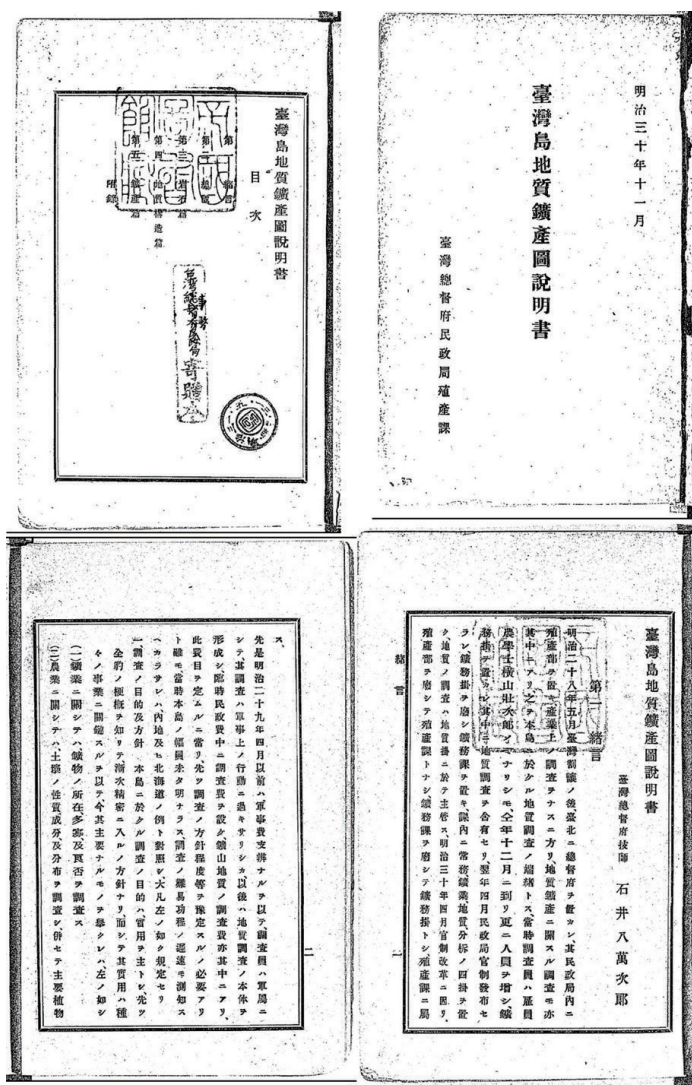 明治三十年十一月
臺灣島地質鑛產圖說明書
臺灣總督府民政局殖產課
臺灣島地質鑛產圖說明書
目次
第一 緒言
第四 地質構造篇
第五 鑛產篇
附錄
寄贈本
臺灣島地質鑛產圖說明書
臺灣總督府技師 石井八萬次郎
第一 緒言
明治二十八年五月臺灣割讓ノ後、臺北ニ總督府ヲ置カレ、其民政局內ニ
殖產部ヲ置キ、產業上ノ調査ヲナスニ方リ、地質鑛產ニ關スル調査モ亦
其中ニアリ、之ヲ本島ニ於クル地質調査ノ端緒トス、當時調査員ハ雇員
農學士橫山壯次郎ノミナリシモ、仝年十二月ニ到リ更ニ人員ヲ增シ、鑛
務掛ヲ置カレ、其中ニ地質調査ヲ含有セリ、翌年四月民政局官制發布セ
ラレ、鑛務掛ヲ廢シ鑛務課ヲ置キ、課內ニ常務鑛業地質分析ノ四掛ヲ置
ク、地質ノ調査ハ地質掛ニ於テ主管ス、明治三十年四月官制改革ニ因リ、
殖產部ヲ廢シテ殖產課トナシ、鑛務課ヲ廢シテ鑛務掛トシ殖產課ニ屬
緒言
一
ス、
先是明治二十九年四月以前ハ軍事費支辨ナルヲ以テ、調査員ハ軍屬ニ
シテ其調査ハ軍事上ノ行動ニ過キサリシカ、以後ハ地質調査ノ本体ヲ
形成シ、臨時民政費中ニ調査費ヲ設ク、鑛山地質ノ調査費亦其中ニアリ、
此費目ヲ定ムルニ當リ、先ツ調査ノ方針程度等ヲ豫定スルノ必要アリ
ト雖モ、當時本島ノ幅員未タ明ナラス、調査ノ難易功程ノ遲速モ測知ス
ヘカラサレハ、內地及ヒ北海道ノ例ト對照シ、大凡左ノ如ク規定セリ
一、調査ノ目的及方針 本島ニ於クル調査ノ目的ハ實用ヲ主トシ、先ツ
全豹ノ梗概ヲ知リテ漸次精密ニ入ルノ方針ナリ、而シテ其實用ハ種
々ノ事業ニ關鍵スルヲ以テ、今其主要ナルモノヲ擧クレハ左ノ如シ
(一)鑛業ニ關シテハ、鑛物ノ所在多寡及良否ヲ調査ス
(二)農業ニ關シテハ、土壤ノ性質成分及分布ヲ調査シ、併セテ主要植物
二